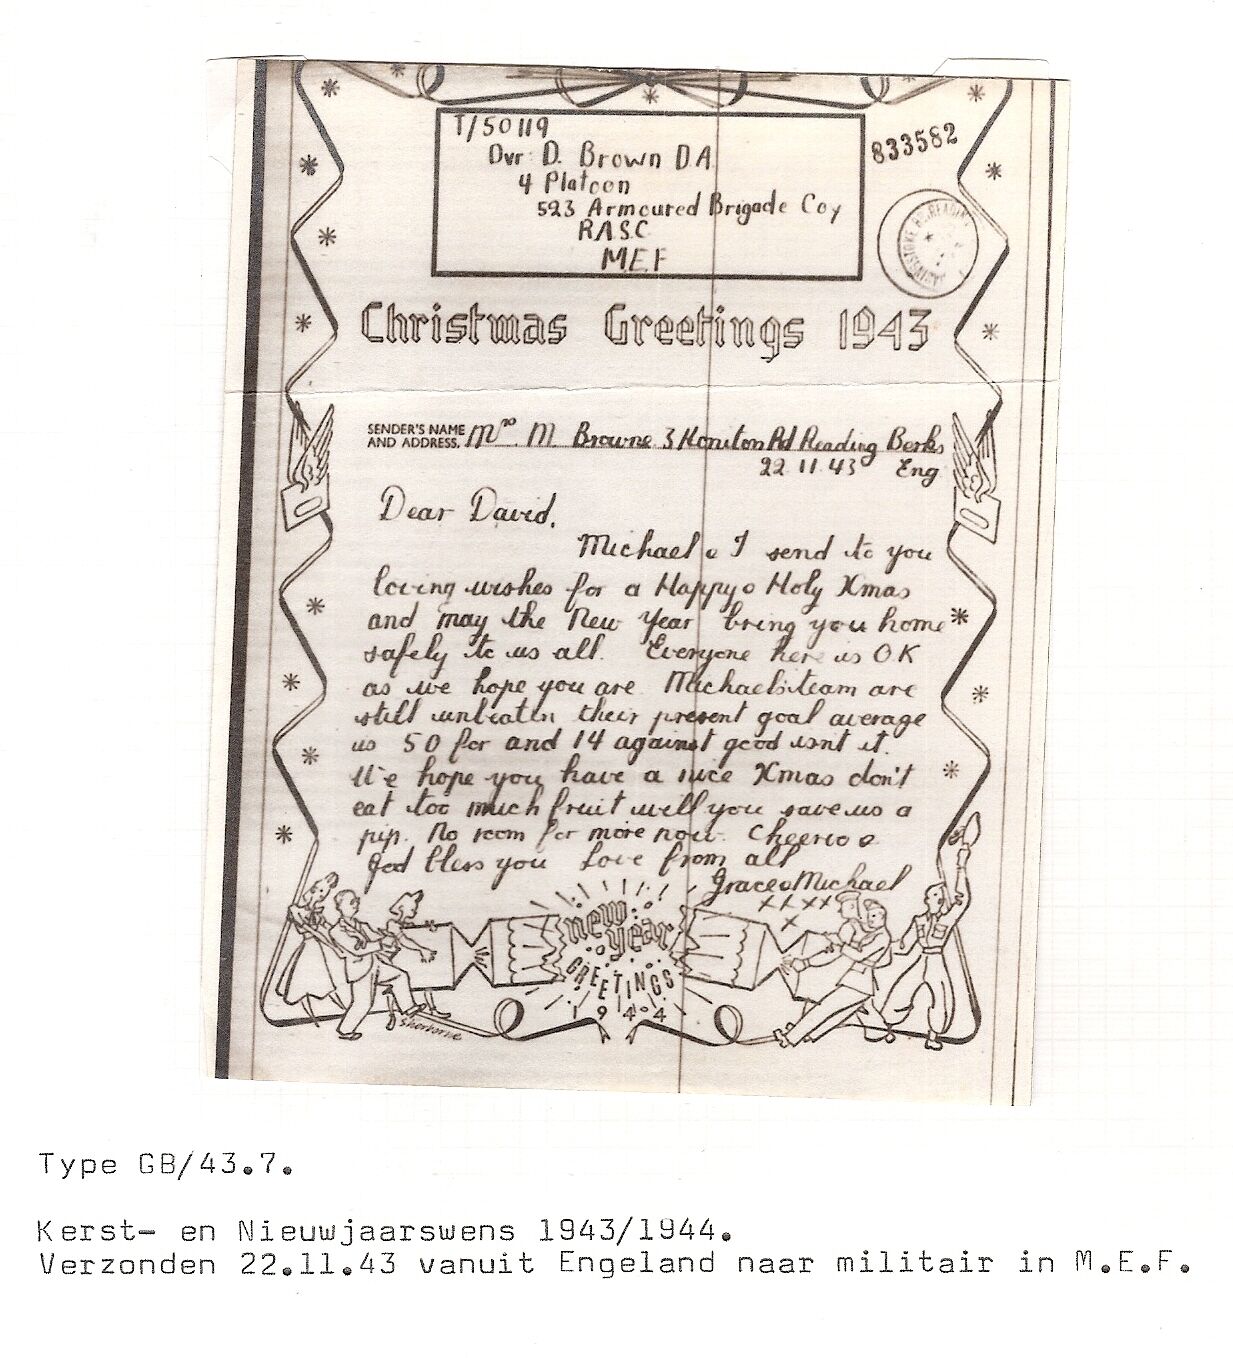 T/50119
Dvr D. Brown D.A.
4 Platoon
523 Armoured Brigade Coy
RASC
M.E.F
833582
BASINGSTOKE READING
Christmas Greetings 1943
SENDER'S NAME
AND ADDRESS. Mrs. M Browne 3 Honiton Rd Reading Berks
22.11.43 Eng
Dear David,
Michael & I send to you
loving wishes for a Happy & Holy Xmas
and may the New Year bring you home
safely to us all. Everyone here is OK
as we hope you are. Michael's team are
still unbeaten their present goal average
is 50 for and 14 against good isnt it.
We hope you have a nice Xmas don't
eat too much fruit will you save us a
pip. No room for more now. Cheerio &
God bless you Love from all
Grace & Michael
xxxxx
x
new
year
GREETINGS
1944
Sherborne
Type GB/43.7.
Kerst- en Nieuwjaarswens 1943/1944.
Verzonden 22.11.43 vanuit Engeland naar militair in M.E.F.